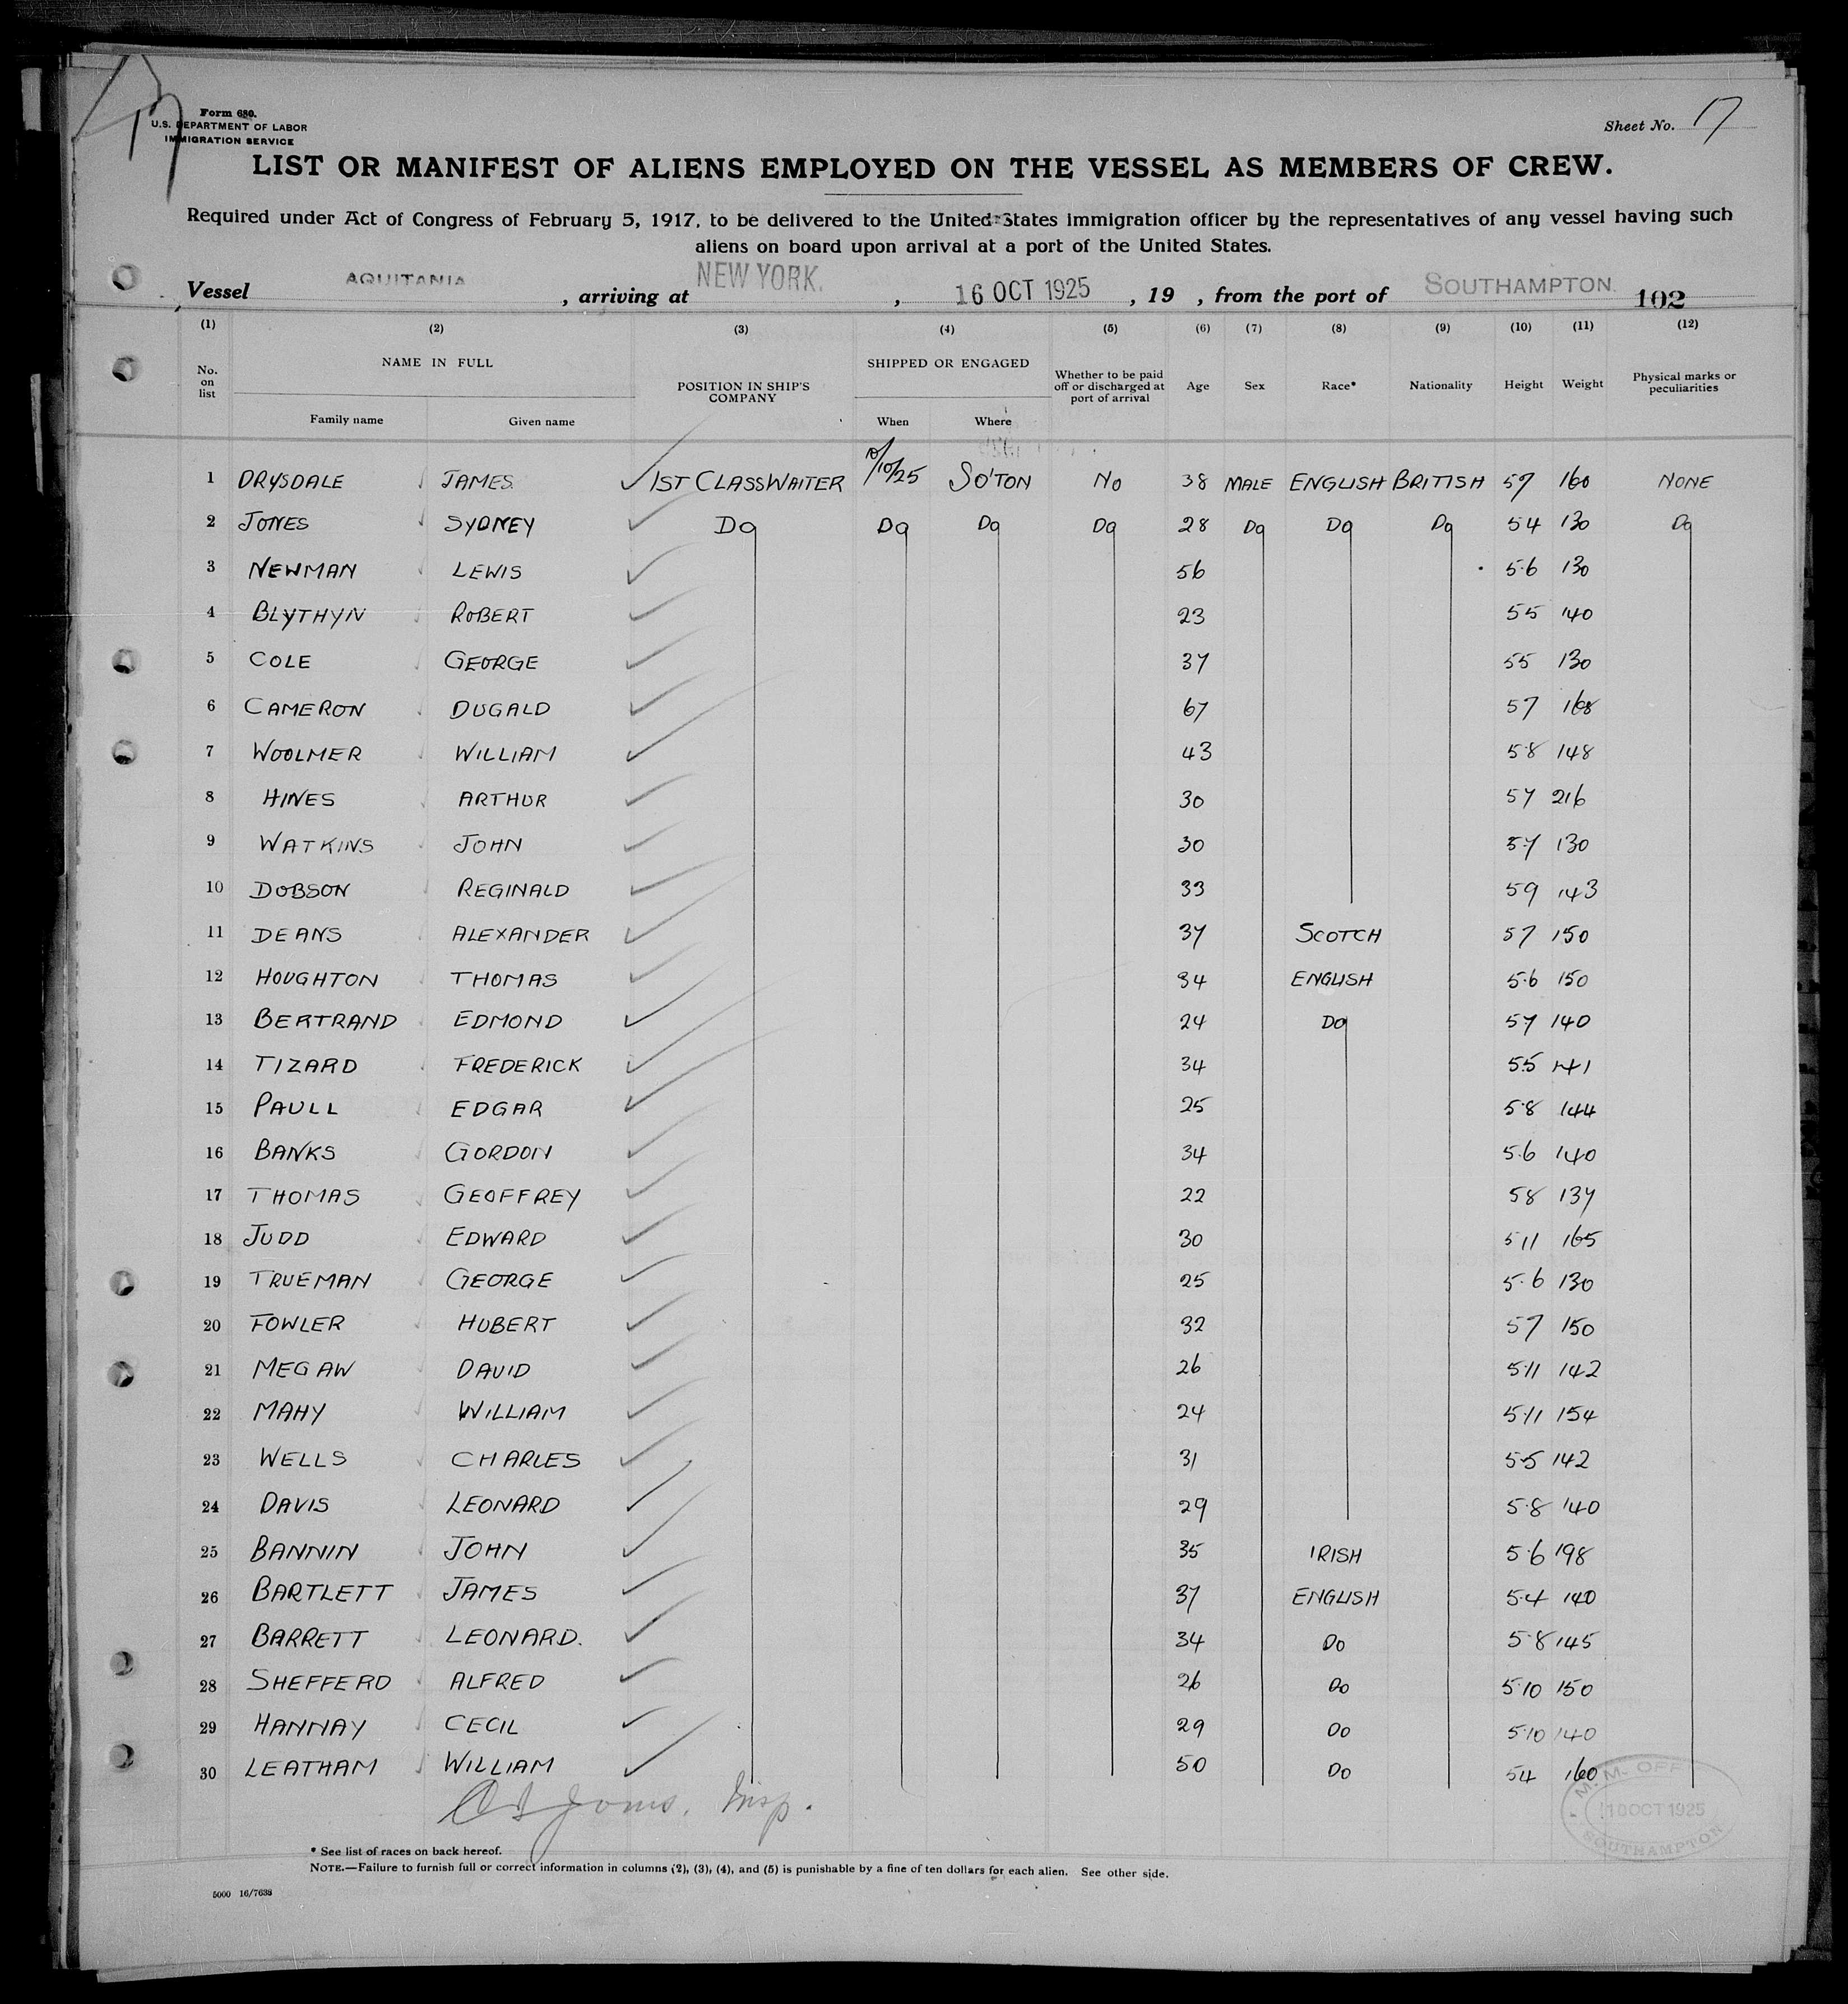 17
Form 680.
U.S. DEPARTMENT OF LABOR
IMMIGRATION SERVICE
Sheet No. 17
LIST OR MANIFEST OF ALIENS EMPLOYED ON THE VESSEL AS MEMBERS OF CREW.
Required under Act of Congress of February 5, 1917, to be delivered to the United States immigration officer by the representatives of any vessel having such
aliens on board upon arrival at a port of the United States.
Vessel AQUITANIA , arriving at NEW YORK. , 16 OCT 1925 , 19 , from the port of SOUTHAMPTON. 102
(1) (2) (3) (4) (5) (6) (7) (8) (9) (10) (11) (12)
No. on list NAME IN FULL POSITION IN SHIP'S COMPANY SHIPPED OR ENGAGED Whether to be paid off or discharged at port of arrival Age Sex Race* Nationality Height Weight Physical marks or peculiarities
Family name Given name When Where
1 DRYSDALE JAMES 1ST CLASS WAITER 10/10/25 SO'TON NO 38 MALE ENGLISH BRITISH 57 160 NONE
2 JONES SYDNEY Do Do Do Do 28 Do Do Do 54 130 Do
3 NEWMAN LEWIS 56 5.6 130
4 BLYTHYN ROBERT 23 55 140
5 COLE GEORGE 37 55 130
6 CAMERON DUGALD 67 57 168
7 WOOLMER WILLIAM 43 5.8 148
8 HINES ARTHUR 30 57 216
9 WATKINS JOHN 30 5.7 130
10 DOBSON REGINALD 33 59 143
11 DEANS ALEXANDER 37 SCOTCH 57 150
12 HOUGHTON THOMAS 34 ENGLISH 5.6 150
13 BERTRAND EDMOND 24 Do 57 140
14 TIZARD FREDERICK 34 5.5 141
15 PAULL EDGAR 25 5.8 144
16 BANKS GORDON 34 5.6 140
17 THOMAS GEOFFREY 22 58 137
18 JUDD EDWARD 30 511 165
19 TRUEMAN GEORGE 25 5.6 130
20 FOWLER HUBERT 32 57 150
21 MEGAW DAVID 26 5.11 142
22 MAHY WILLIAM 24 5.11 154
23 WELLS CHARLES 31 5.5 142
24 DAVIS LEONARD 29 5.8 140
25 BANNIN JOHN 35 IRISH 5.6 198
26 BARTLETT JAMES 37 ENGLISH 5.4 140
27 BARRETT LEONARD. 34 Do 5.8 145
28 SHEFFERD ALFRED 26 Do 5.10 150
29 HANNAY CECIL 29 Do 5.10 140
30 LEATHAM WILLIAM 50 Do 54 160
Jones, Insp.
M. M. OFF
10 OCT 1925
SOUTHAMPTON
* See list of races on back hereof.
NOTE.—Failure to furnish full or correct information in columns (2), (3), (4), and (5) is punishable by a fine of ten dollars for each alien. See other side.
5000 16/7638